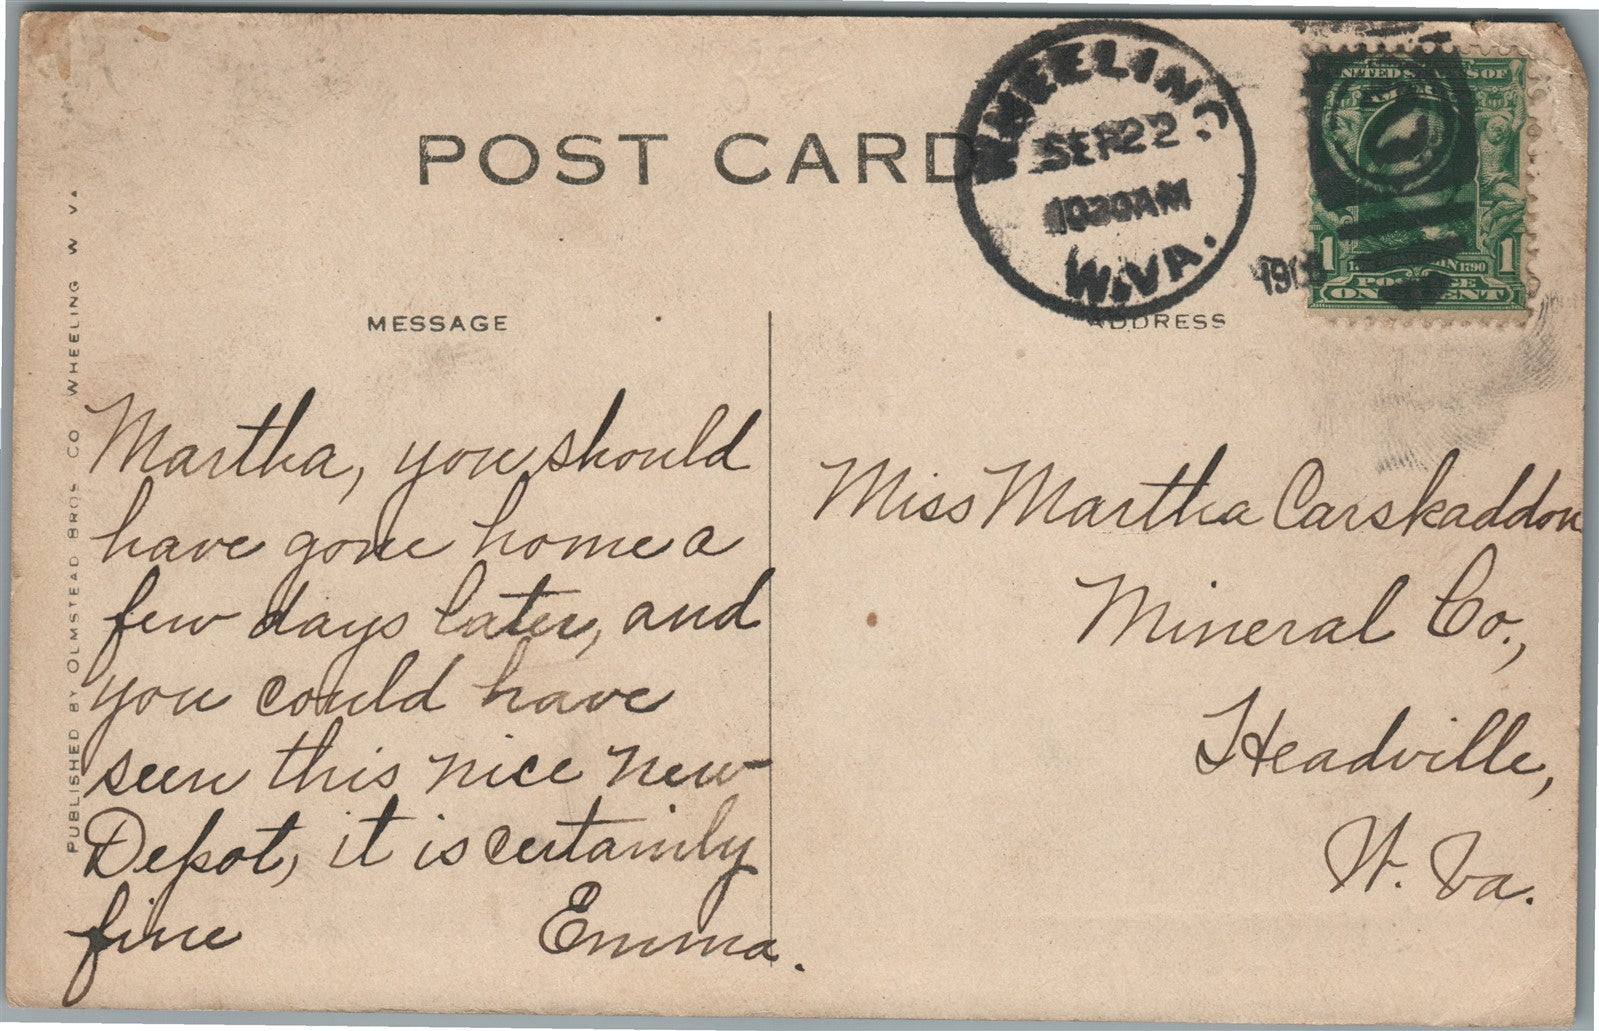 POST CARD
WHEELING
SEP 22
1030AM
W.VA.
UNITED STATES OF
1 1
IN 1790
POSTAGE
ONE CENT
MESSAGE
ADDRESS
PUBLISHED BY OLMSTEAD BROS CO WHEELING W VA
Martha, you should
have gone home a
few days later, and
you could have
seen this nice new
Depot, it is certainly
fine Emma.
Miss Martha Carskaddon
Mineral Co.,
Headville,
W. Va.